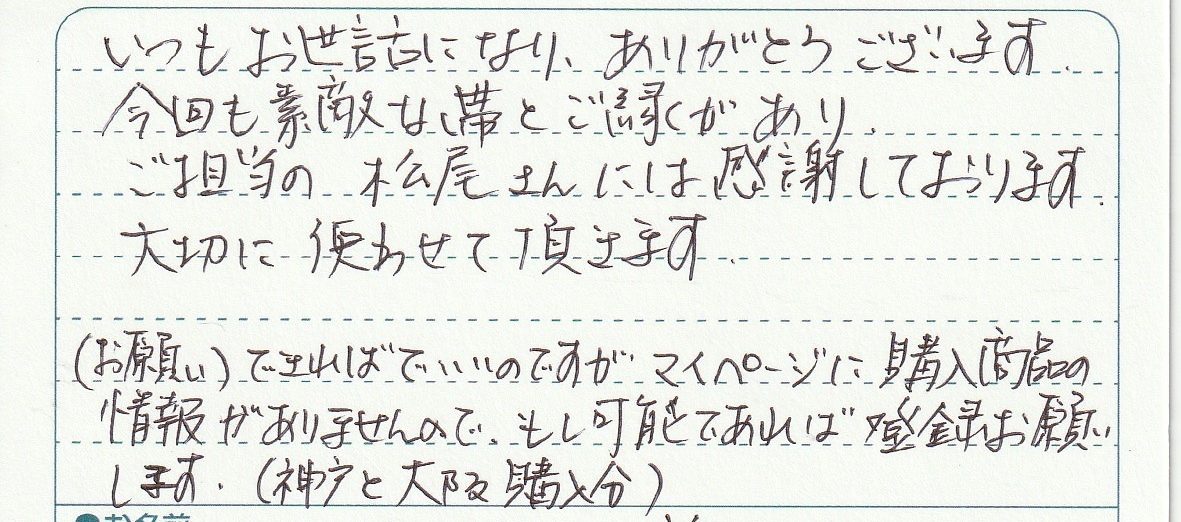 いつもお世話になり、ありがとうございます.
今回も素敵な帯とご縁があり、
ご担当の 松尾さんには感謝しております.
大切に使わせて頂きます.
(お願い)できればでいいのですが マイページに購入商品の
情報がありませんので、もし可能であれば登録お願い
します. (神戸と大阪購入分)
●お名前